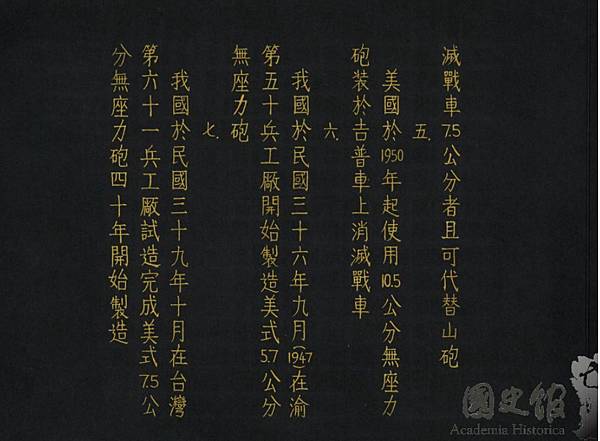 滅戰車7.5公分者且可代替山砲
五.
美國於1950年起使用10.5公分無座力
砲裝於吉普車上消滅戰車
六.
我國於民國三十六年九月(1947)在渝
第五十兵工廠開始製造美式5.7公分
無座力砲
七.
我國於民國三十九年十月在台灣
第六十一兵工廠試造完成美式7.5公
分無座力砲四十年開始製造
國史館
Academia Historica